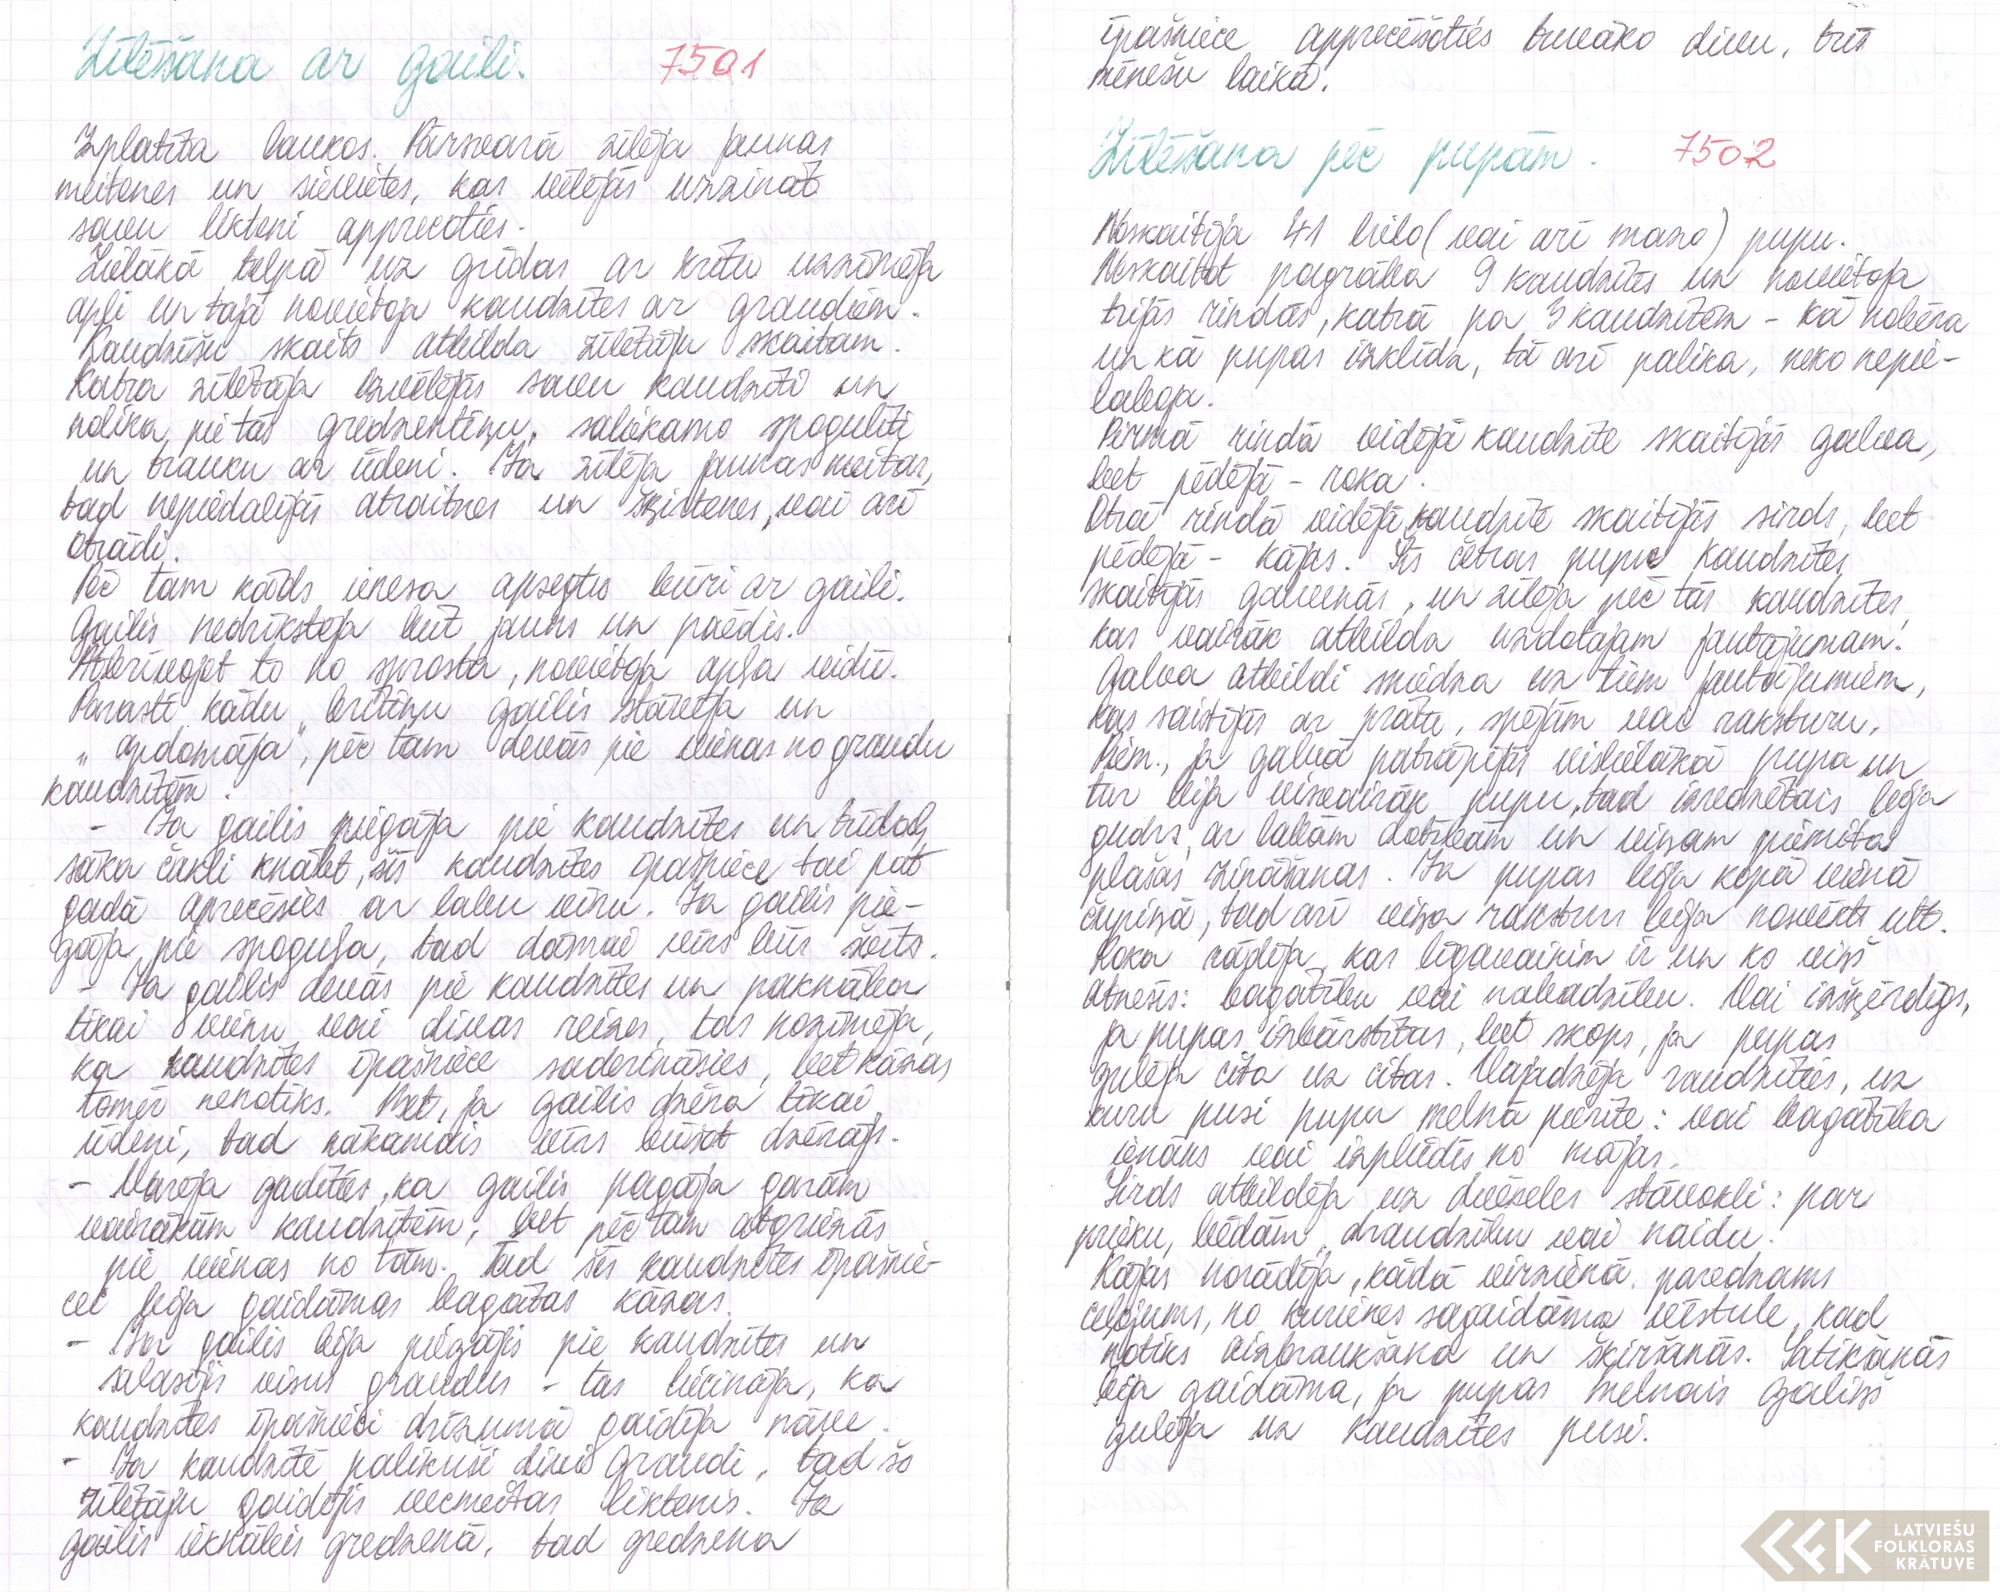 Zīlēšana ar gaili. 7501
Izplatīta laukos. Pārsvarā zīlēja jaunas
meitenes un sievietes, kas vēlējās uzzināt
savu likteni apprecoties.
Lielākā telpā uz grīdas ar krītu uzzīmēja
apli un tajā novietoja kaudzītes ar graudiem.
Kaudzīšu skaits atbilda zīlētāju skaitam.
Katra zīlētāja izvēlējās savu kaudzīti un
nolika pie tās gredzentiņu, saliekamo spogulīti
un trauku ar ūdeni. Ja zīlēja jaunas meitas,
tad nepiedalījās atraitnes un šķirtenes, vai arī
otrādi.
Pēc tam kāds ienesa apsegtu būri ar gaili.
Gailis nedrīkstēja būt jauns un paēdis.
Atbrīvojot to no sprosta, novietoja apļa vidū.
Parasti kādu brītiņu gailis stāvēja un
„apdomāja", pēc tam devās pie vienas no graudu
kaudzītēm.
- Ja gailis piegāja pie kaudzītes un tūdaļ
sāka čakli knābt, šīs kaudzītes īpašniece tai pat
gadā aprecēsies ar labu vīru. Ja gailis pie-
gāja pie spoguļa, tad dāmai vīrs būs švīts.
- Ja gailis devās pie kaudzītes un paknāba
tikai vienu vai divas reizes, tas nozīmēja,
ka kaudzītes īpašniece saderināsies, bet kāzas
tomēr nenotiks. Bet, ja gailis dzēra tikai
ūdeni, tad nākamais vīrs būšot dzērājs.
- Varēja gadīties, ka gailis pagāja garām
vairākām kaudzītēm, bet pēc tam atgriezās
pie vienas no tām. Tad šīs kaudzītes īpašnie-
cei bija gaidāmas bagātas kāzas.
- Ja gailis bija piegājis pie kaudzītes un
salasījis visus graudus - tas liecināja, ka
kaudzītes īpašnieci drīzumā gaidīja nāve.
- Ja kaudzītē palikuši divi graudi, tad šo
zīlētāju gaidījis vecmeitas liktenis. Ja
gailis ieknābis gredzenā, tad gredzena
īpašniece apprecēšoties tuvāko divu, trīs
mēnešu laikā.
Zīlēšana pēc pupām. 7502
Noskaitīja 41 lielo (vai arī mazo) pupu.
Neskaitot pagrāba 9 kaudzītēs un novietoja
trijās rindās, katrā pa 3 kaudzītēm - kā nobēra
un kā pupas izklīda, tā arī palika, neko nepie-
laboja.
Pirmā rindā vidējā kaudzīte skaitījās galva,
bet pēdējā - roka.
Otrā rindā vidējā kaudzīte skaitījās sirds, bet
pēdējā - kājas. Šīs četras pupu kaudzītes
skaitījās galvenās, un zīlēja pēc tās kaudzītes,
kas vairāk atbilda uzdotajam jautājumam.
Galva atbildi sniedza uz tiem jautājumiem,
kas saistījās ar prātu, spējām vai raksturu.
Piem., ja galvā patrāpījās vislielākā pupa un
tur bija visvairāk pupu, tad izredzētais bija
gudrs, ar labām dotībām un viņam piemita
plašas zināšanas. Ja pupas bija kopā vienā
čupiņā, tad arī viņa raksturs bija nosvērts utt.
Roka rādīja, kas līgavainim ir un ko viņš
atnesīs: bagātību vai nabadzību. Vai izšķērdīgs,
ja pupas izbārstītas, bet skops, ja pupas
gulēja cita uz citas. Vajadzēja raudzīties, uz
kuru pusi pupu melnā pierīte: vai bagātība
ienāks vai izplūdīs no mājas.
Sirds atbildēja uz dvēseles stāvokli: par
prieku, bēdām, draudzību vai naidu.
Kājas norādīja, kādā virzienā paredzams
ceļojums, no kurienes sagaidāma vēstule, kad
notiks aizbraukšana un šķiršanās. Satikšanās
bija gaidāma, ja pupas melnais galiņš
gulēja uz kaudzītes pusi.
LATVIEŠU
FOLKLORAS
KRĀTUVE